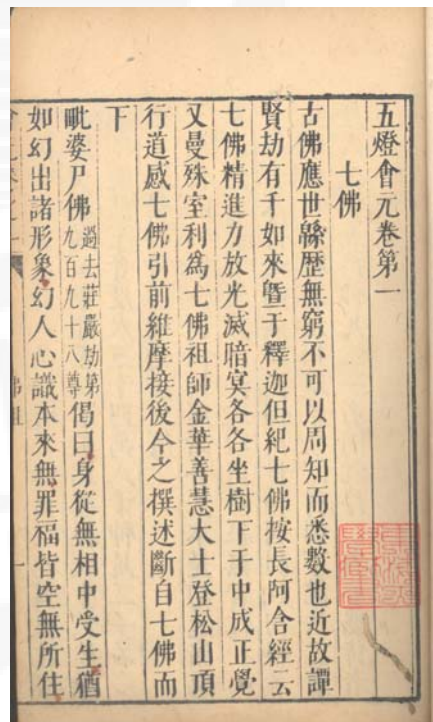 五燈會元卷第一
七佛
古佛應世緜歷無窮不可以周知而悉數也近故譚
賢劫有千如來曁于釋迦但紀七佛按長阿含經云
七佛精進力放光滅暗冥各各坐樹下于中成正覺
又曼殊室利為七佛祖師金華善慧大士登松山頂
行道感七佛引前維摩接後今之撰述斷自七佛而
下
毗婆尸佛過去莊嚴劫第九百九十八尊偈曰身從無相中受生猶
如幻出諸形象幻人心識本來無罪福皆空無所住